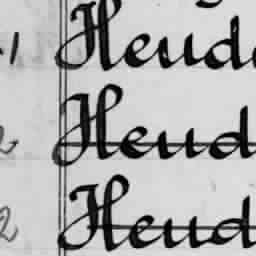 1 Hend
2 Hend
2 Hend